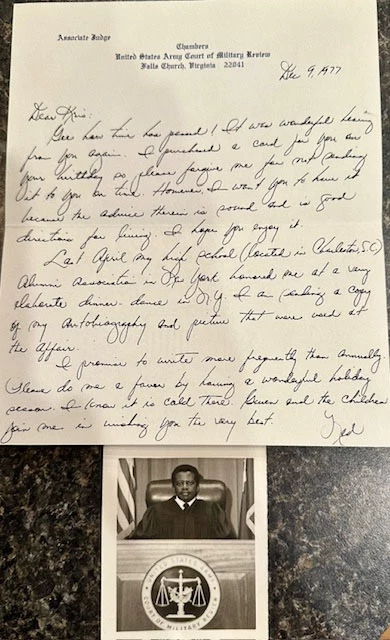 Associate Judge
Chambers
United States Army Court of Military Review
Falls Church, Virginia 22041
Dec 9, 1977
Dear Kris:
Gee how time has passed! It was wonderful hearing
from you again. I purchased a card for you on
your birthday so please forgive me for not sending
it to you on time. However, I want you to have it
because the advice therein is sound and is good
directions for living. I hope you enjoy it.
Last April my high school (located in Charleston, SC)
Alumni Association in New York honored me at a very
elaborate dinner-dance in N.Y. I am sending a copy
of my Autobiography and picture that were used at
the affair.
I promise to write more frequently than annually.
Please do me a favor by having a wonderful holiday
season. I know it is cold there. Gwen and the children
join me in wishing you the very best.
Ned
UNITED STATES ARMY
COURT OF MILITARY REVIEW